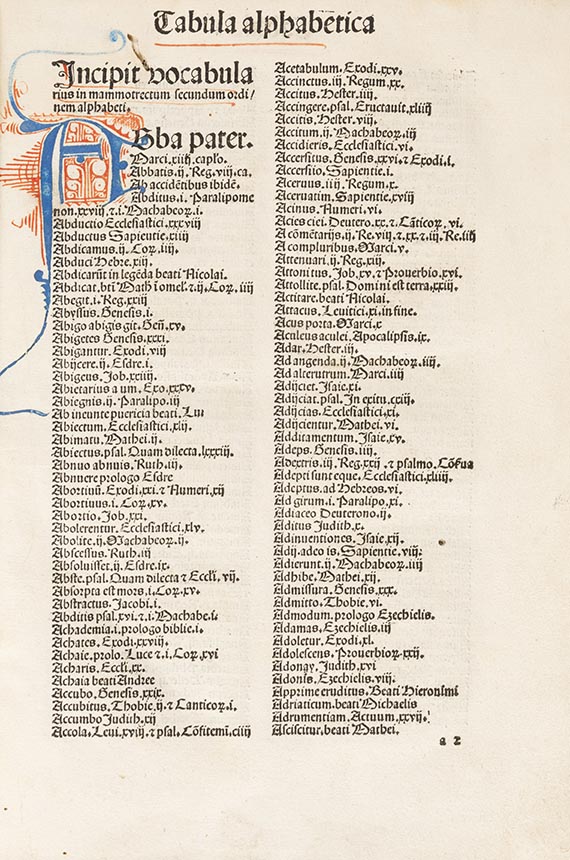 Tabula alphabetica
Incipit vocabula
rius in mammotrectum secundum ordi/
nem alphabeti.
Abba pater.
Marci.xiiij.caplo.
Abbatis.ij.Reg.viij.ca.
Ab accidētibus ibidē.
Abditus.i.Paralipome
non.xxviij.⁊.i.Machabeoꝝ.i.
Abductio Ecclesiastici.xxxviij
Abductus Sapientie.xiiij
Abdicamus.ij.Coꝝ.iiij.
Abduci Hebre.xij.
Abdicarūt in legēda beati Nicolai.
Abdicat.bti Math i omel.⁊.ij.Coꝝ.iiij
Abegit.i.Reg.xxiij
Abyssus.Genesis.i.
Abigo abigis git.Geñ.xv.
Abigetes Genesis.xxxi.
Abigantur.Exodi.viij
Abijcere.ij.Esdre.i.
Abigeus.Job.xxiiij.
Abietarius a um.Exo.xxxv.
Abiegnis.ij.Paralipo.iij
Ab ineunte puericia beati.Lu
Abiectum.Ecclesiastici.xlij.
Abimatu.Mathei.ij.
Abiectus.psal.Quam dilecta.lxxxiij.
Abnuo abnuis.Ruth.iij.
Abnuere prologo Esdre
Abortiuū.Exodi.xxi.⁊ Numeri.xij
Abortinus.i.Coꝝ.xv.
Abortio.Job.xxi.
Abolerentur.Ecclesiastici.xlv.
Abolite.ij.Machabeoꝝ.ij.
Abscessus.Ruth.iij
Absoluisset.ij.Esdre.ix.
Abste.psal.Quam dilecta ⁊ Eccli.vij.
Absorpta est mors.i.Coꝝ.xv.
Abstractus.Jacobi.i.
Abditis psal.xvi.⁊.i.Machabe.i.
Achademia.i.prologo biblie.i.
Achates.Exodi.xxviij.
Achaie.prolo.Luce ⁊.i.Coꝝ.xvi
Acharis.Eccli.xx.
Achaia beati Andree
Accubo.Genesis.xxix.
Accubitus.Thobie.ij.⁊ Canticoꝝ.i.
Accumbo Judith.xij
Accola.Leui.xviij.⁊ psal.Cōfitemi.ciiij
Acetabulum.Exodi.xxv.
Accinctus.iij.Regum.xx.
Accitus.Hester.iiij.
Accingere.psal.Eructauit.xliiij
Accitis.Hester.viij.
Accitum.ij.Machabeoꝝ.iij
Accidieris.Ecclesiastici.vi.
Accersitus.Genesis.xxvi.⁊ Exodi.i.
Accersiio.Sapientie.i.
Aceruus.iiij.Regum.x.
Aceruatim.Sapientie.xviij
Acinus.Numeri.vi.
Acies ciei.Deutero.xx.⁊.Cāticoꝝ.vi.
Acōmētarijs.ij.Re.viij.⁊.xx.⁊.iij.Re.iiij
A compluribus.Marci.v.
Attenuari.ij.Reg.xij.
Attonitus.Job.xv.⁊ Prouerbio.xvi.
Attollite.psal.Domini est terra.xxiij.
Actitare.beati Nicolai.
Attacus.Leuitici.xi.in fine.
Acus porta.Marci.x
Aculeus aculei.Apocalipsis.ix.
Adar.Hester.iij.
Ad angenda.ij.Machabeoꝝ.iiij.
Ad alterutrum.Marci.iiij
Adijciet.Isaie.xi.
Adijciat.psal.In exitu.cxiij.
Adijcias.Ecclesiastici.xi.
Adijcientur.Mathei.vi.
Additamentum.Isaie.xv.
Adeps.Genesis.iiij.
Adextris.iij.Reg.xxij.⁊ psalmo.Cōserua
Adepti sunt eque.Ecclesiastici.xliiij.
Adeptus.ad Hebreos.vi.
Ad girum.i.Paralipo.xi.
Adiaceo Deuterono.ij.
Aditus Judith.x.
Adinuentiones.Isaie.xij.
Adij.adeo is.Sapientie.viij.
Adierunt.ij.Machabeoꝝ.iiij
Adhibe.Mathei.xij.
Admissura.Genesis.xxx.
Admitto.Thobie.vi.
Admodum.prologo Ezechielis.
Adamas.Ezechielis.iij
Adoletur.Exodi.xl.
Adolescens.Prouerbioꝝ.xxij.
Adonay.Judith.xvi
Adonis.Ezechielis.viij.
Apprime eruditus.Beati Hieronimi
Adriaticum.beati Michaelis
Adrumentiam.Actuum.xxvij.
Asciscitur.beati Mathei.
a 2